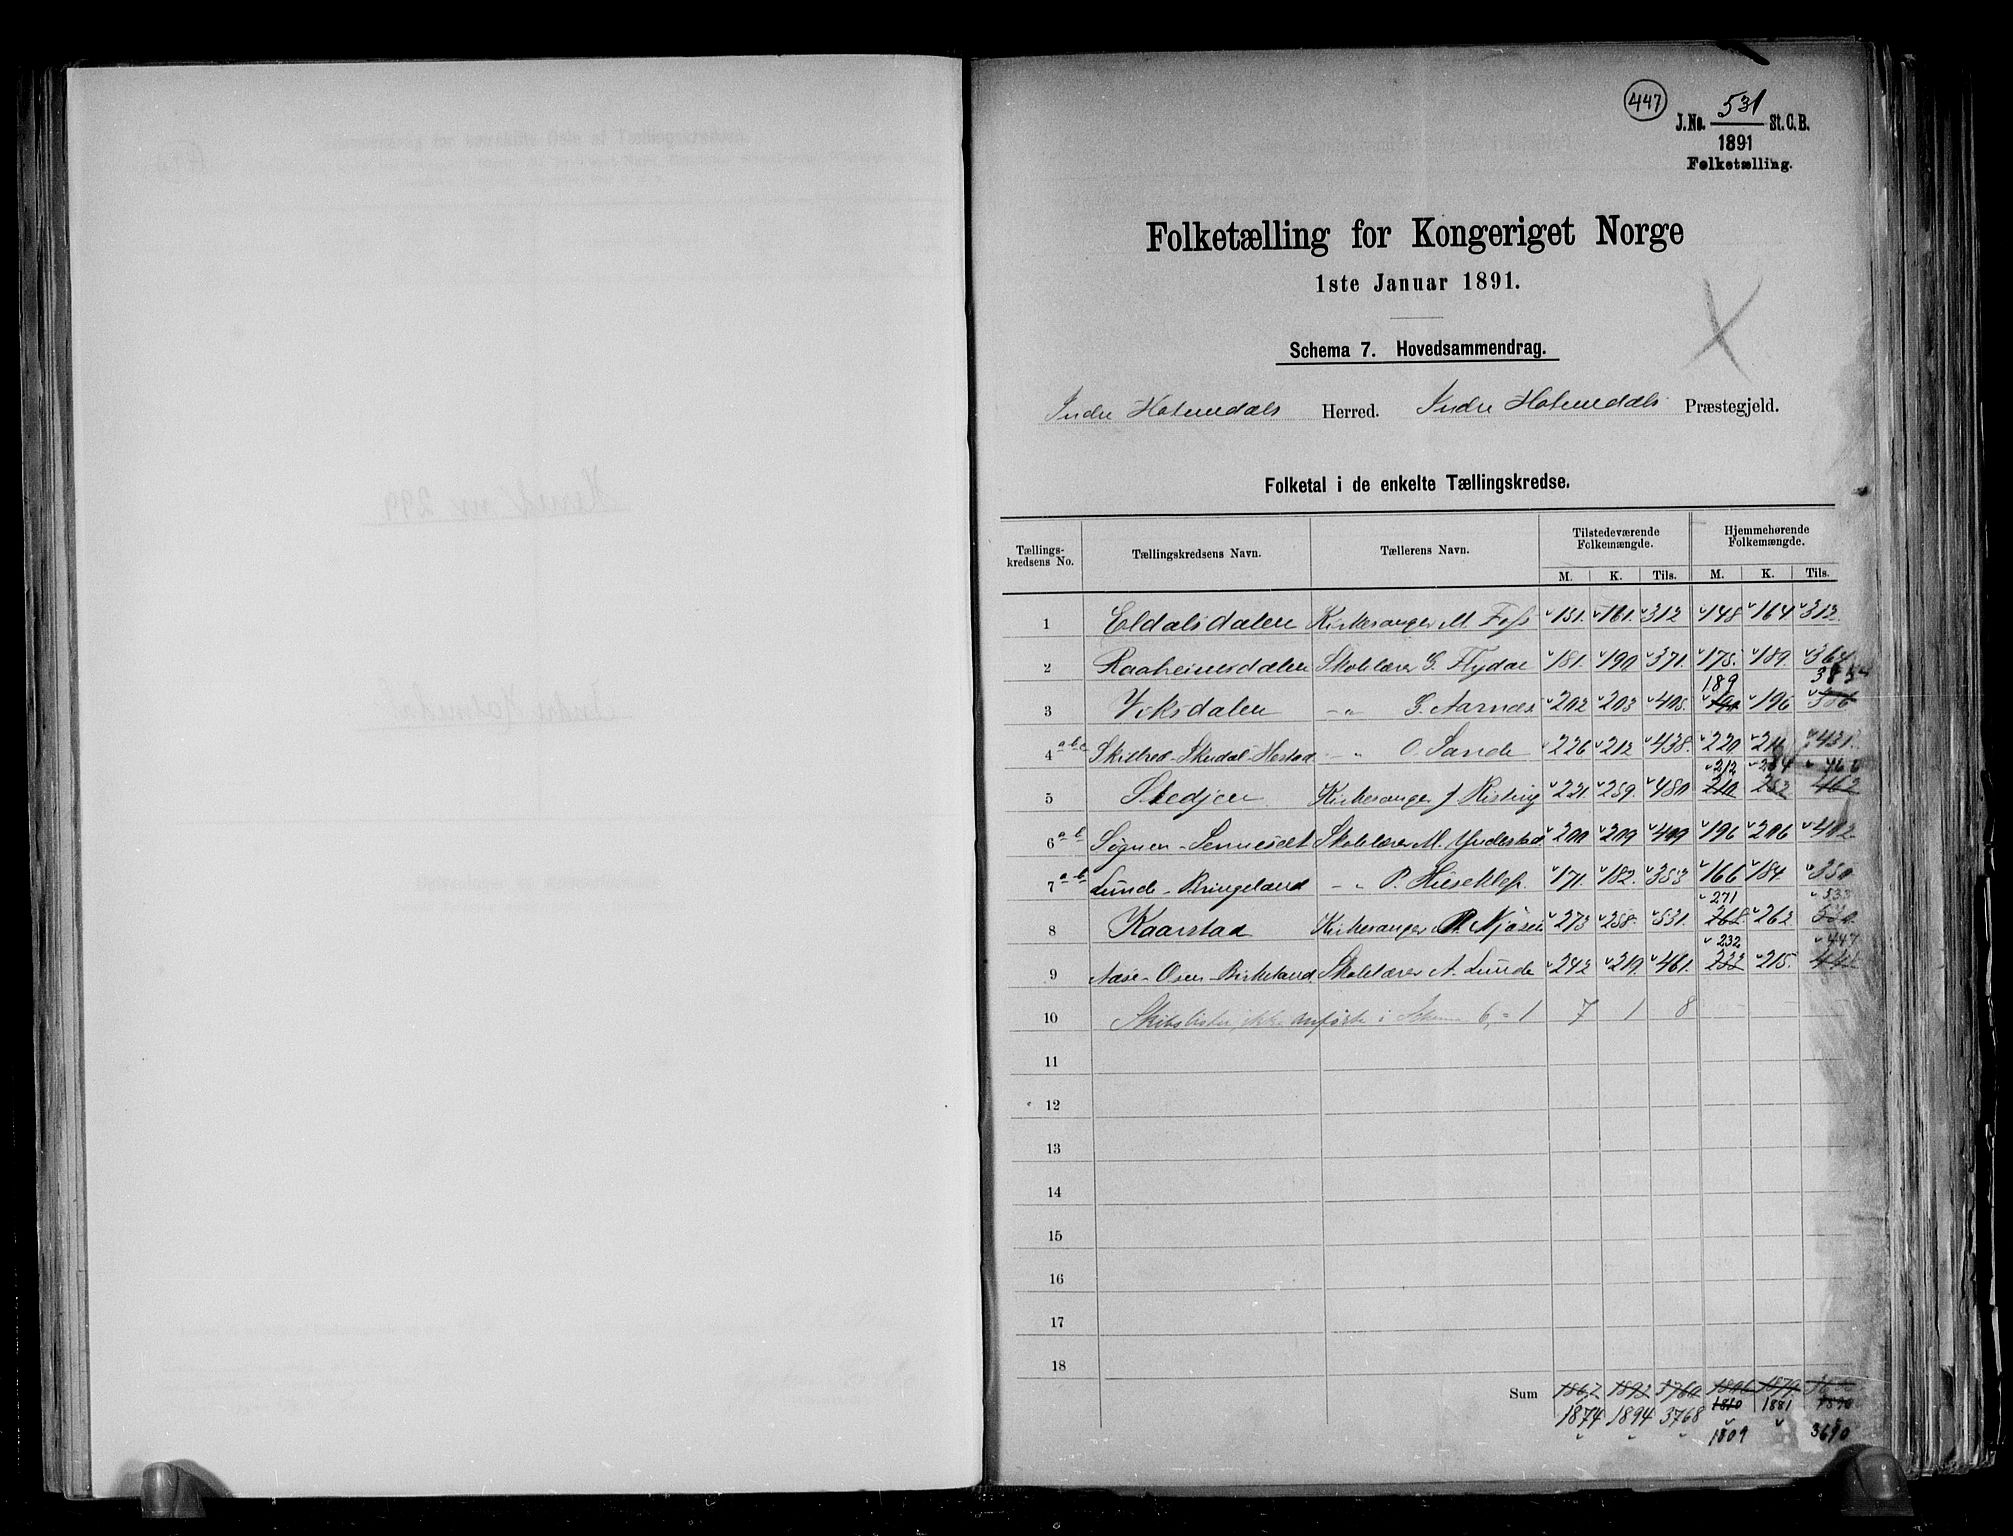 447
J.No. 531 St.C.B.
1891
Folketælling.
Folketælling for Kongeriget Norge
1ste Januar 1891.
Schema 7. Hovedsammendrag.
Indre Holmedals Herred. Indre Holmedals Præstegjeld.
Folketal i de enkelte Tællingskredse.
Tællings-kredsens No. Tællingskredsens Navn. Tællerens Navn. Tilstedeværende Folkemængde. Hjemmehørende Folkemængde.
M. K. Tils. M. K. Tils.
1 Eldalsdalen Kirkesanger M. Foss 151. 161. 312 148 164 312.
2 Raaheimsdalen Skolelærer G. Flydal 181. 190 371. 175. 189. 364
189 385
3 Viksdalen -"- G. Aarnæs 202 203 405. 190 196 386
4 a-b-c Skilbred-Skudal-Hestad -"- O. Sande 226 212 438. 220 211 431.
212 254 466
5 Stedjen Kirkesanger J. Risting 221 259. 480 210 252 462
6 a-b Sogner-Sennesæt Skolelærer M. Yndestad 200 209 409 196 206 402.
7 a-b Lunde-Bringeland -"- P. Hiseklep. 171. 182. 353 166 184. 350
271 533
8 Kaarstad Kirkesanger Njøsen 273 258. 531. 268. 262 530.
232 447
9 Aase-Osen-Birkeland Skolelærer A. Lunde 242 219 461. 233 215. 448
10 Skibslister ikke anførte i Schema 6, = 1 7 1 8 - - -
11
12
13
14
15
16
17
18
Sum 1867 1893 3760 1806 1879
1874 1894 3768 1810 1881
1809 3690